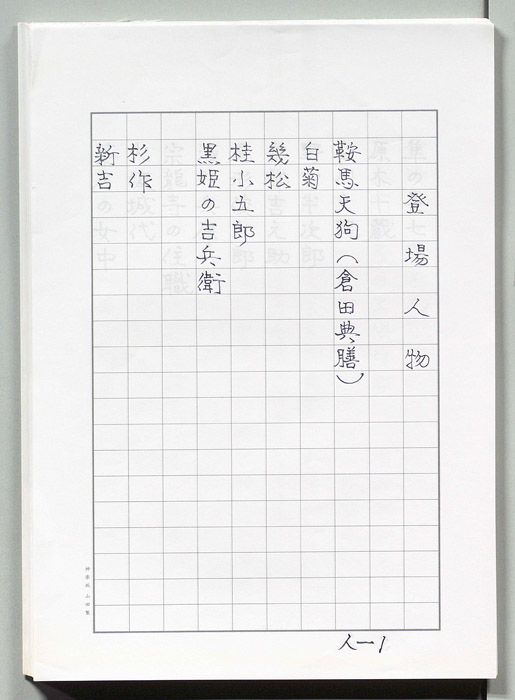 登場人物
鞍馬天狗（倉田典膳）
白菊
幾松
桂小五郎
黒姫の吉兵衛
杉作
新吉
人一1
神楽坂 山田製